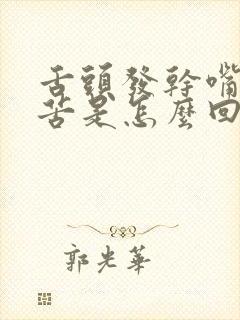 舌頭發幹嘴
苦是怎麼回
郭光華